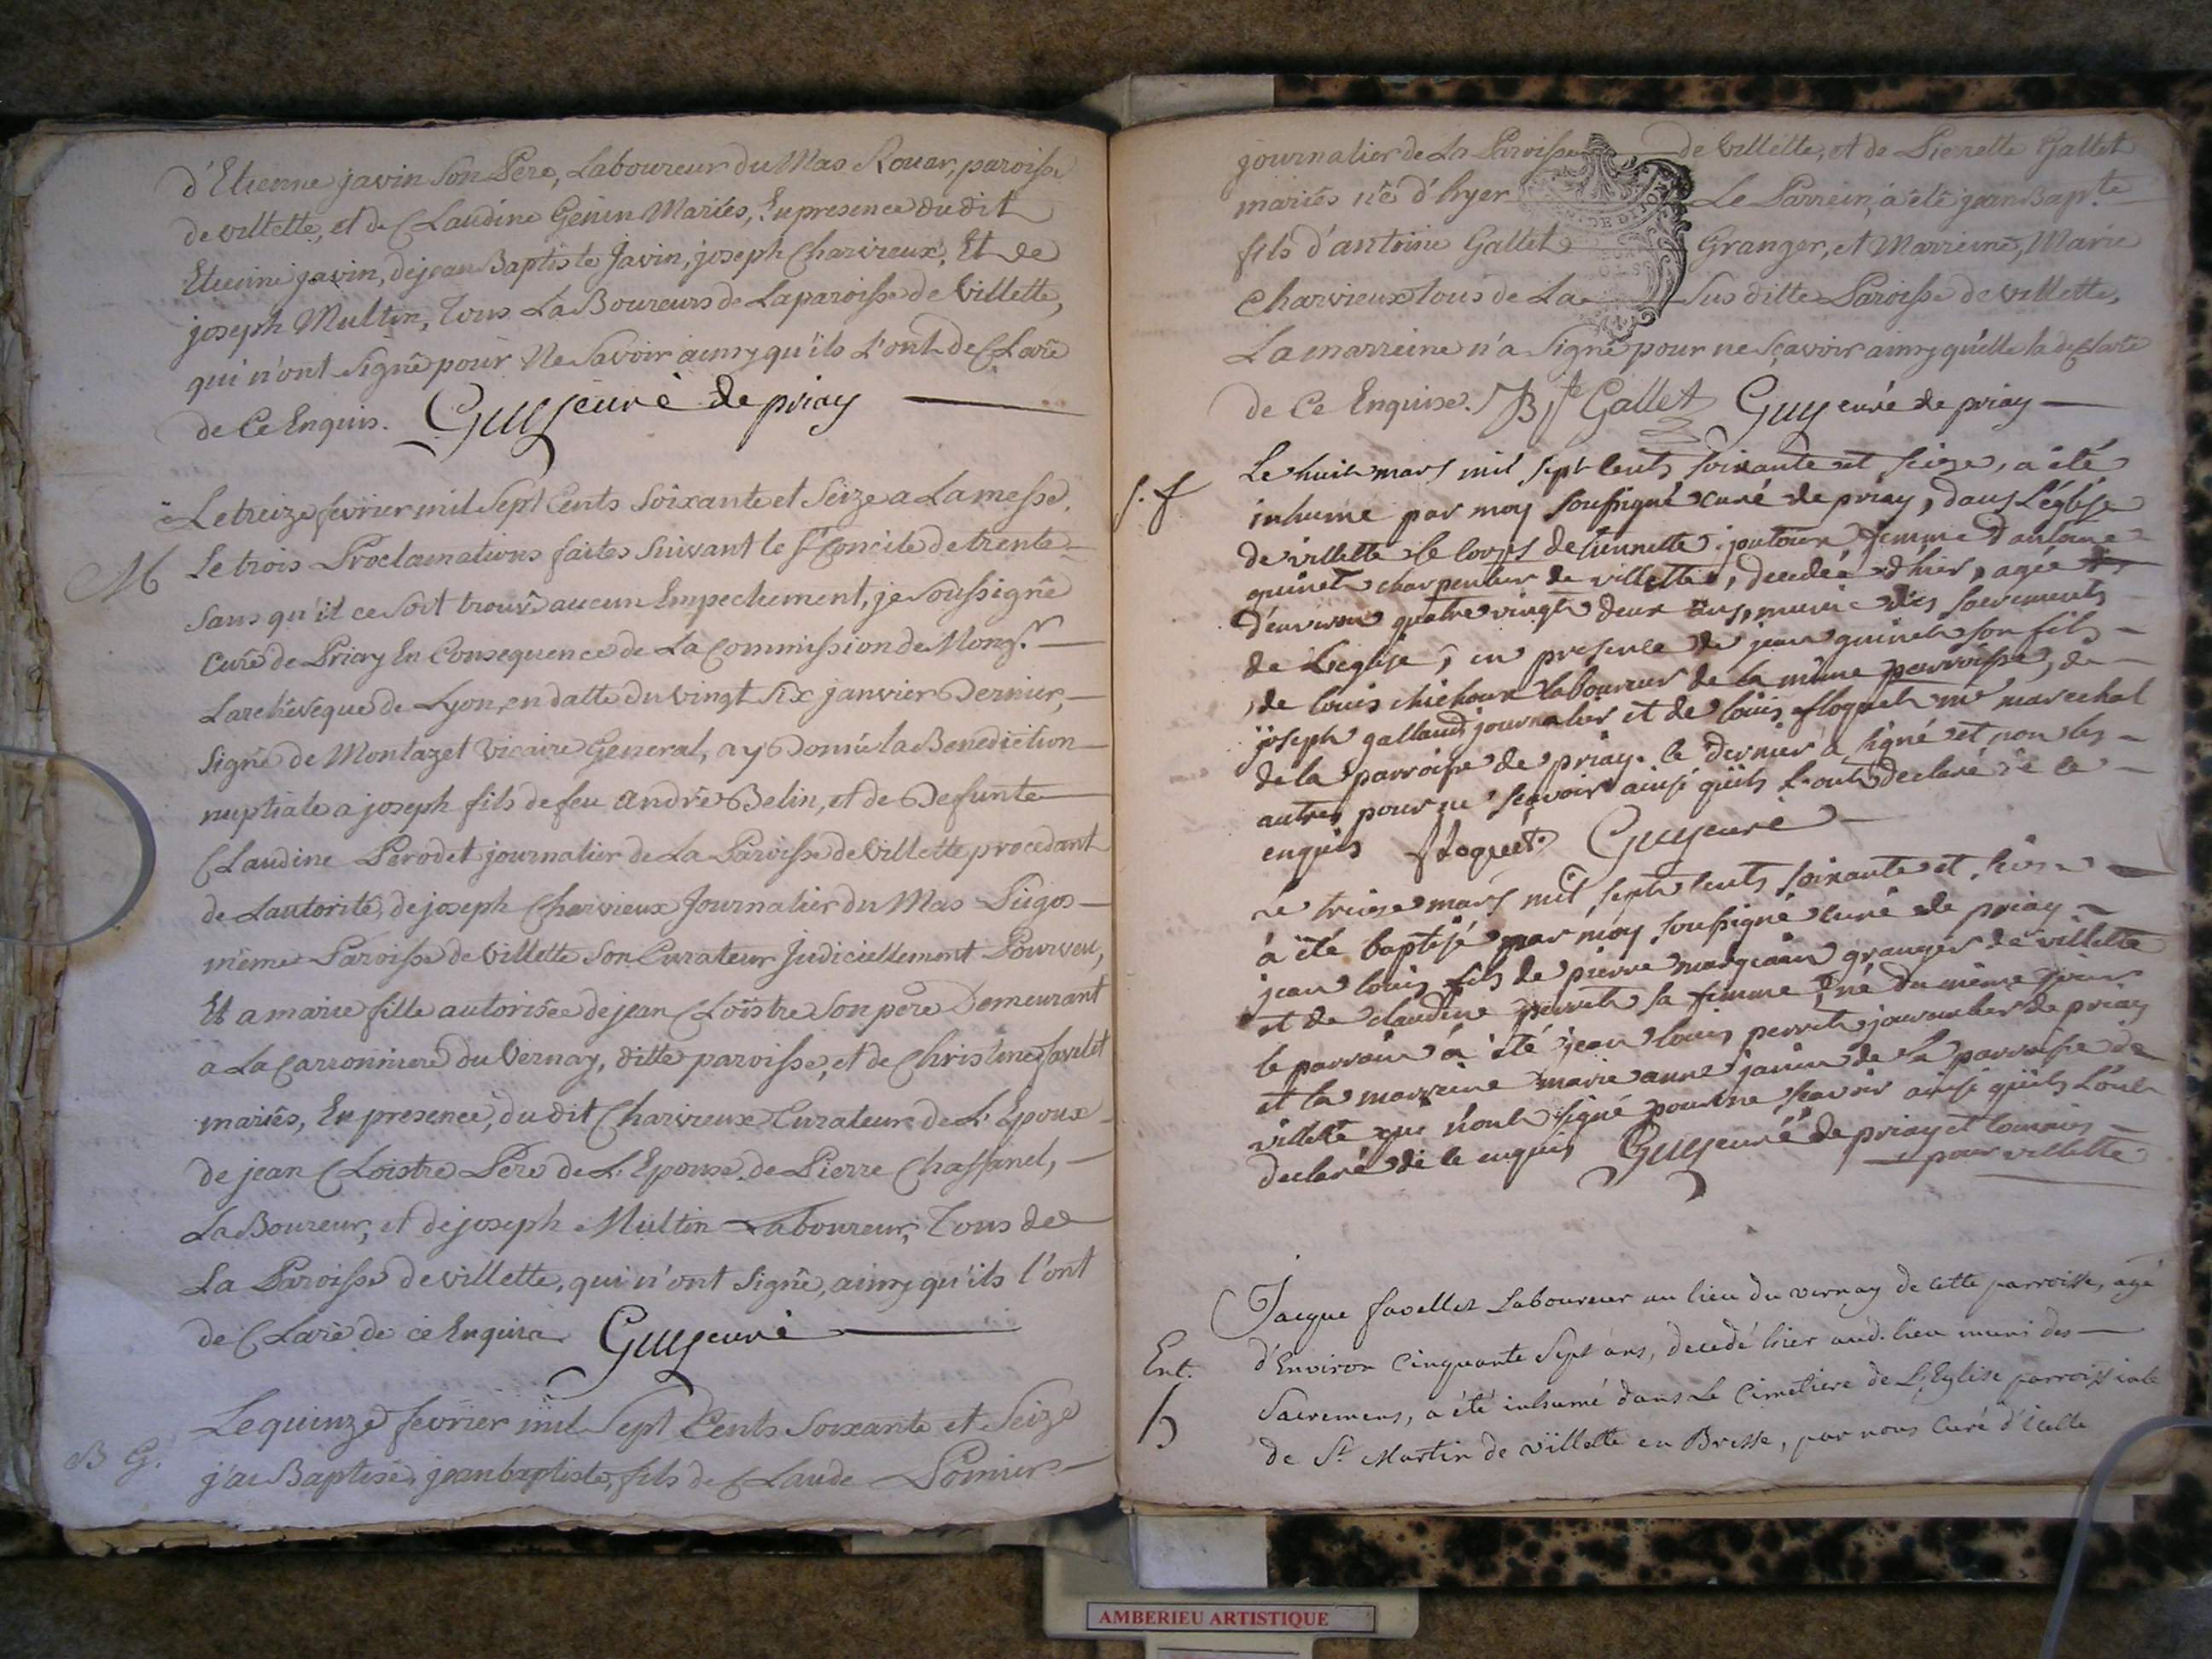 d'Etienne javin Son Pere, Laboureur du Mas Rouar, paroisse
de villette, et de Claudine Genin Mariés, En presence du dit
Etienne javin, de jean Baptiste Javin, joseph Charvieux, Et de
joseph Multin, Tous LaBoureurs de La paroisse de Villette,
qui n'ont Signé pour Ne Savoir ainsy qu'ils L'ont de Claré
de Ce Enquis. Guy curé de priay
Le treize fevrier mil Sept Cents Soixante et Seize a La messe,
M
Le trois Proclamations faites Suivant le St Concile de trente
Sans qu'il ce Soit trouvé aucun Empechement, je Soussigné
Curé de Priay En Consequence de La Commission de Mongr.
Larchêvêque de Lyon, en datte du vingt Six janvier Dernier,
Signé de Montazet Vicaire General, ay Donné la Benediction
nuptiale a joseph fils de feu André Belin, et de Defunte
Claudine Perodet journalier de La Paroisse de Villette procedant
de Lautorité, de joseph Charvieux Journalier du Mas Pugos
même Paroisse de Villette Son Curateur Judiciellement Pourveu,
Et a marie fille autorisée de jean Cloistre Son pere Demeurant
a La Carronniere du Vernay, ditte paroisse, et de Christine favelet
mariés, En presence, du dit Charvieux Curateur de L'Epoux
de jean Cloistre Pere de L'Epouse, de Pierre Chassanel,
LaBoureur, et de joseph Multin Laboureur, Tous de
La Paroisse de villette, qui n'ont Signé, ainsy qu'ils l'ont
de Claré de ce Enquis Guy curé
Le quinze fevrier mil Sept Cents Soixante et Seize
B G.
j'ai Baptisé, jean baptiste, fils de Claude Pomier
journalier de La Paroisse de Villette, et de Pierrette Gallet
mariés né d'hyer Le Parrein, a été jean Bapte
fils d'antoine Gallet Granger, et Marreine, Marie
Charvieux tous de La Sus ditte Paroisse de Villette,
La marreine n'a Signé pour ne Sçavoir ainsy qu'elle la de Claré
de Ce Enquise. JBte Gallet Guy curé de priay
Le huit mars mil sept cents soixante et seize, a été
s. f
inhumé par moy soussigné curé de priay, dans L'église
de villette le corps detiennette joutoux femme d'antoine
quinet charpentier de villette, decedée d'hier, agée
d'environ quatre vingt deux ans, munie des sacrements
de L'eglise, en presence de jean quinet son fils
de louis chichoux laboureur de la même parroisse, de
joseph galland journalier et de louis floquet me marechal
de la parroisse de priay. le dernier a signé et non les
autres pour ne sçavoir ainsi qu'ils l'ont declaré de ce
enquis floquet Guy curé
Le treize mars mil sept cents soixante et seize
a été baptisé par moy soussigné curé de priay
jean louis fils de pierre granger de villette
et de claudine perret sa femme, né du même jour
le parrain a été jean louis perret journalier de priay
et la marreine marie anne janin de la parroisse de
villette qui n'ont signé pour ne sçavoir ainsi qu'ils L'ont
declaré de ce enquis Guy curé de priay et commis
pour villette
Jacque favellet Laboureur au lieu du vernay de cette parroisse, agé
Ent.
d'Environ Cinquante Sept ans, decedé hier aud. lieu muni des
Sacremens, a été inhumé dans Le Cimetiere de L'Eglise parroissiale
de St Martin de villette en Bresse, par nous Curé d'icelle
AMBERIEU ARTISTIQUE